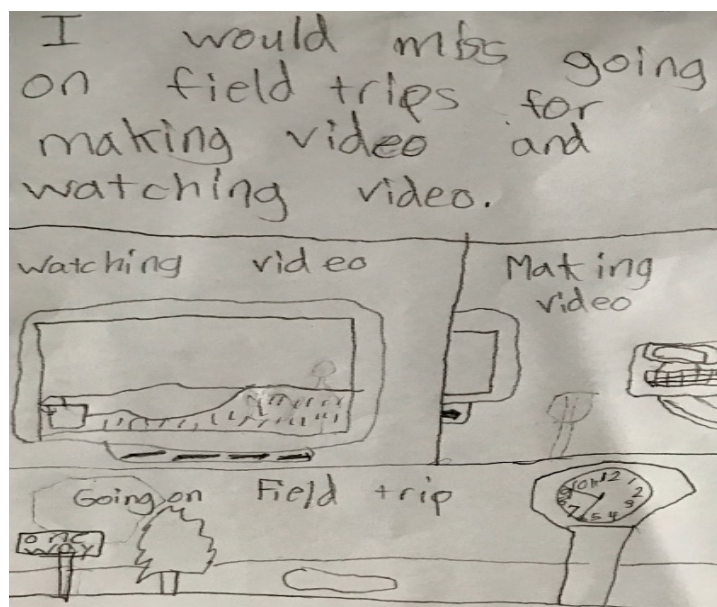 I would miss going
on field trips for
making video and
watching video.
watching video
Making
video
Going on Field trip
ONE
WAY
10 11 12 1
9 2
8 3
7 6 5 4